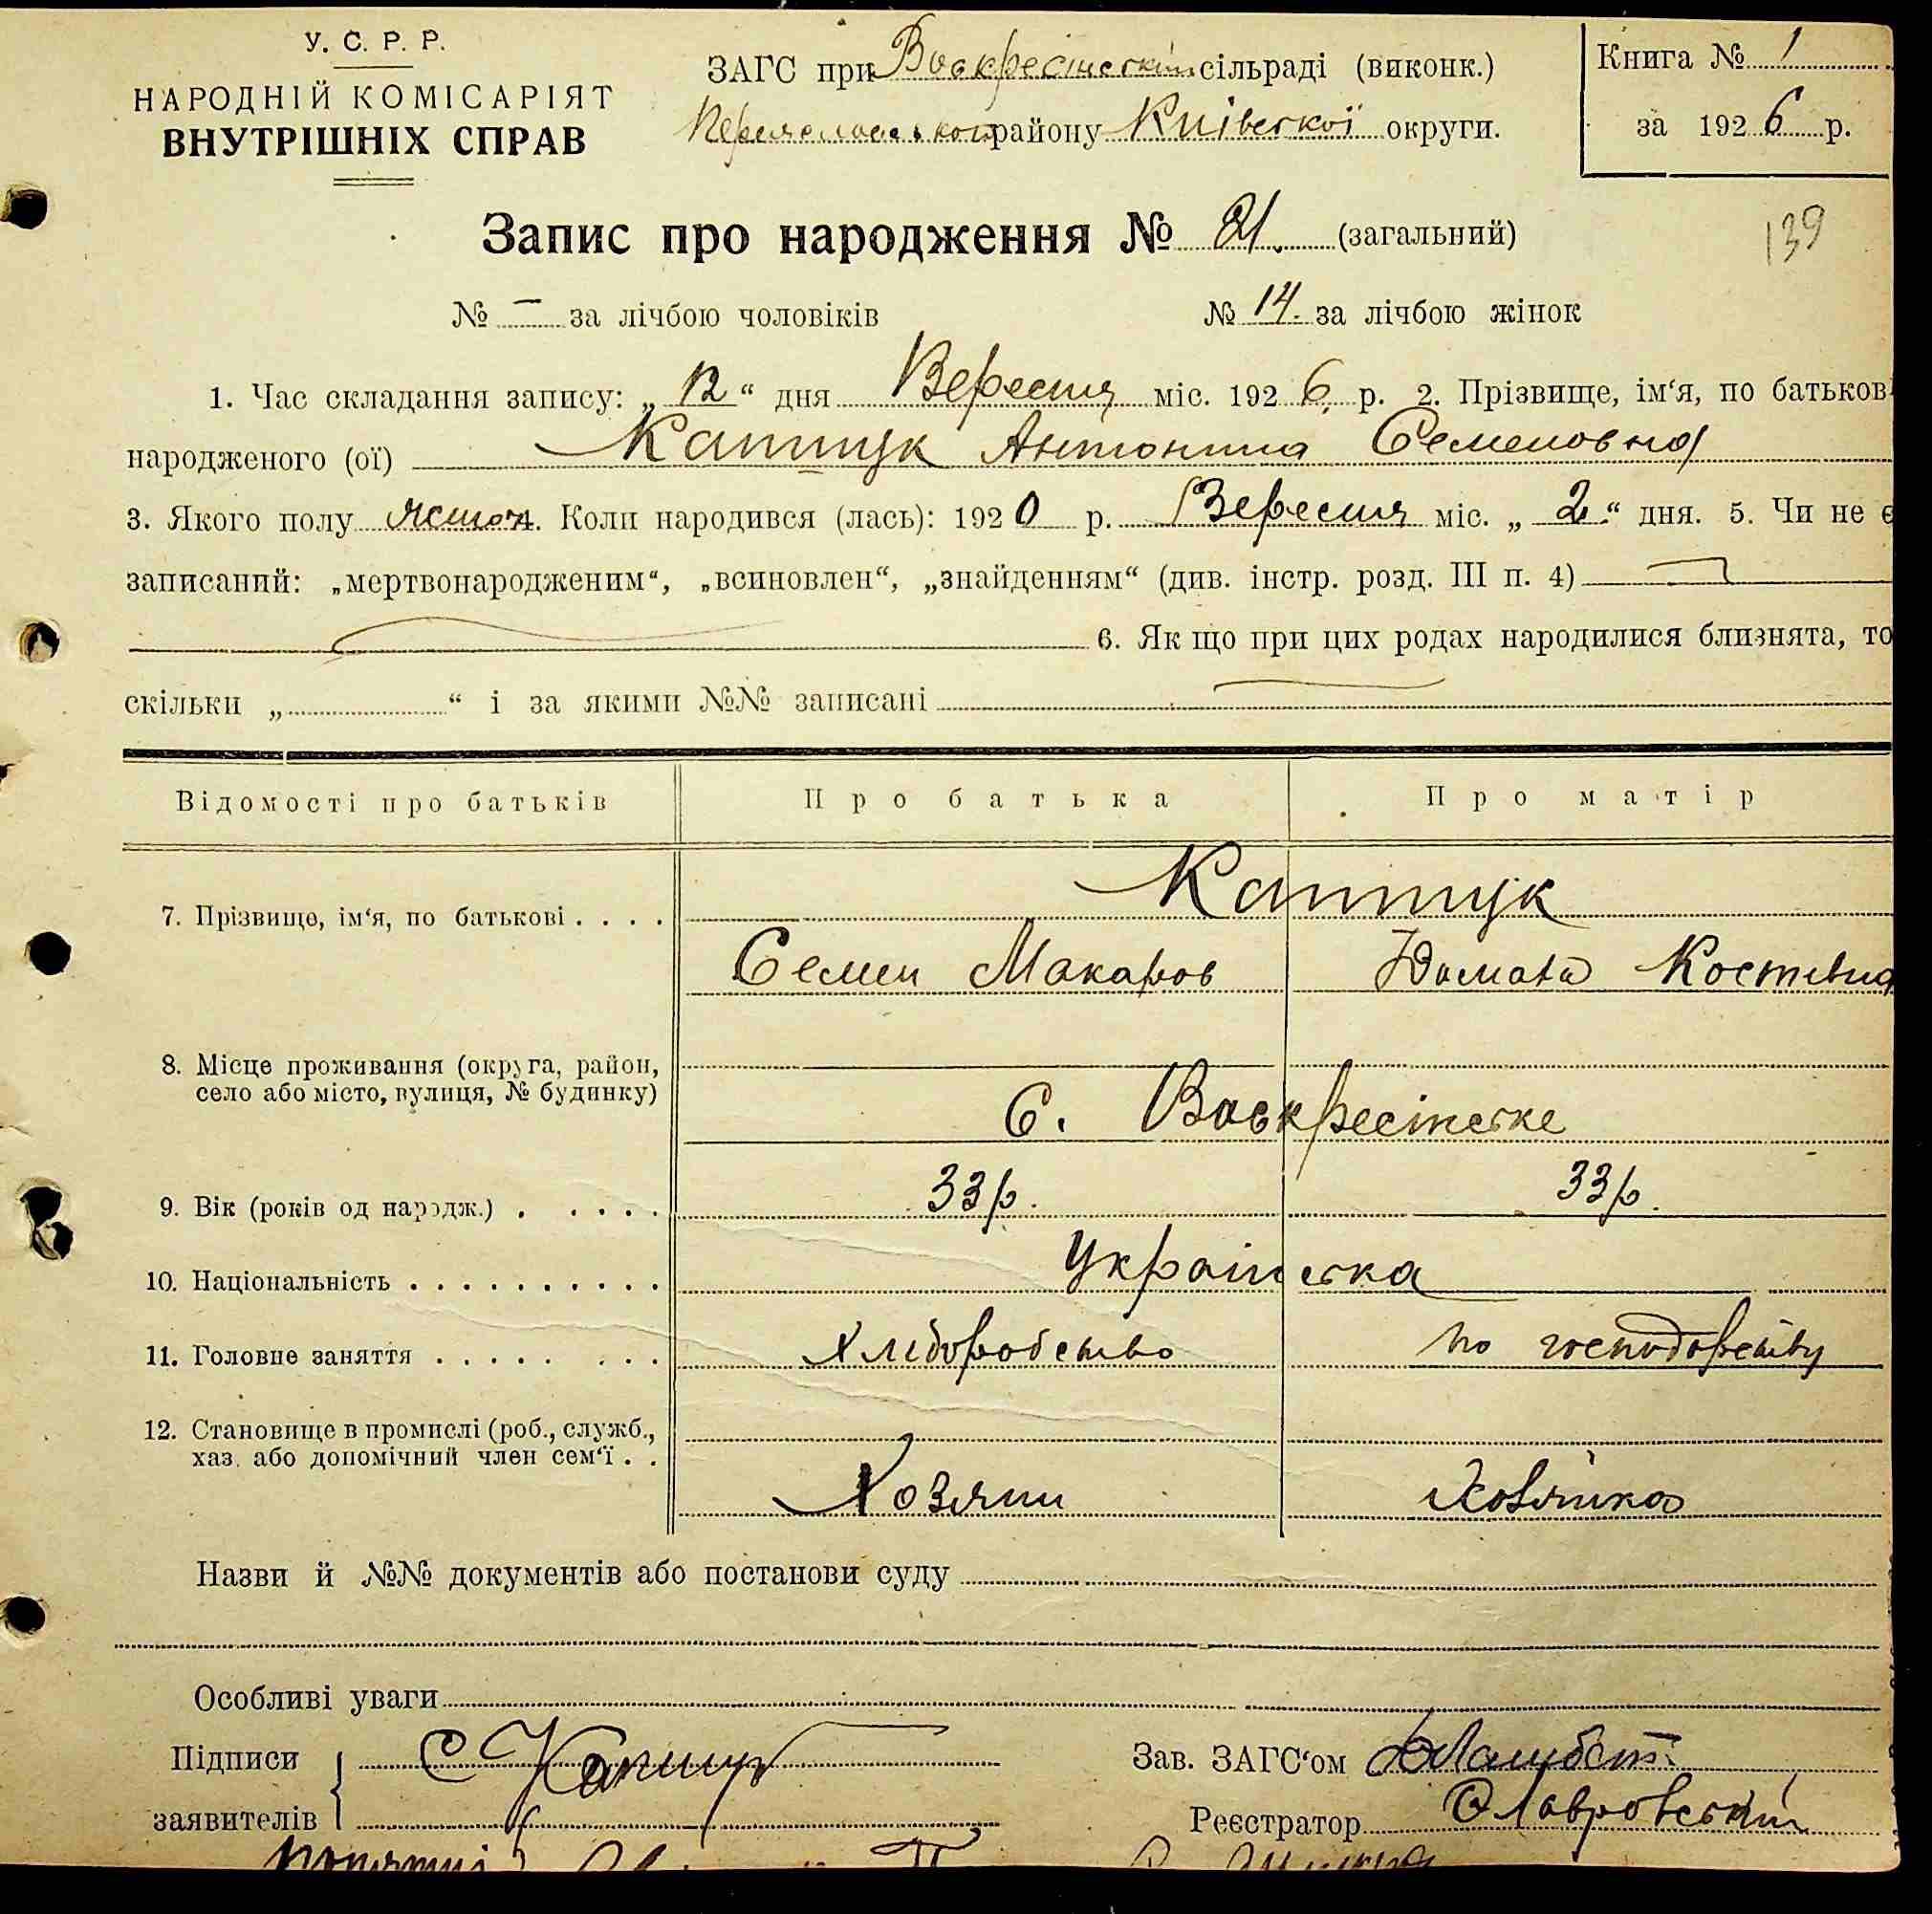 У. С. Р. Р.
НАРОДНІЙ КОМІСАРІЯТ
ВНУТРІШНІХ СПРАВ
ЗАГС при Воскресінській сільраді (виконк.)
району Київської округи.
Книга № 1
за 1926 р.
Запис про народження № 21. (загальний)
139
№ — за лічбою чоловіків № 14. за лічбою жінок
1. Час складання запису: „12“ дня Вересня міс. 1926 р. 2. Прізвище, ім‘я, по батькові
народженого (ої) Капшук Антонина Семеновна
3. Якого полу жіноч 4. Коли народився (лась): 1920 р. Вересня міс. „2“ дня. 5. Чи не є
записаний: „мертвонародженим“, „всиновлен“, „знайденням“ (див. інстр. розд. III п. 4)
6. Як що при цих родах народилися близнята, то
скільки „ “ і за якими №№ записані
Відомості про батьків Про батька Про матір
7. Прізвище, ім‘я, по батькові . . . . Капшук
Семен Макаров Домаха Костівна
8. Місце проживання (округа, район,
село або місто, вулиця, № будинку)
С. Воскресінське
9. Вік (років од народж.) . . . . . 33 р. 33 р.
10. Національність . . . . . . . . . . Українська
11. Головне заняття . . . . . . . . Хліборобство по господарству
12. Становище в промислі (роб., служб.,
хаз. або допомічний член сем‘ї . .
Хозяин Хозяйка
Назви й №№ документів або постанови суду
Особливі уваги
Підписи С Капшук Зав. ЗАГС‘ом
заявителів Реєстратор Лавровський